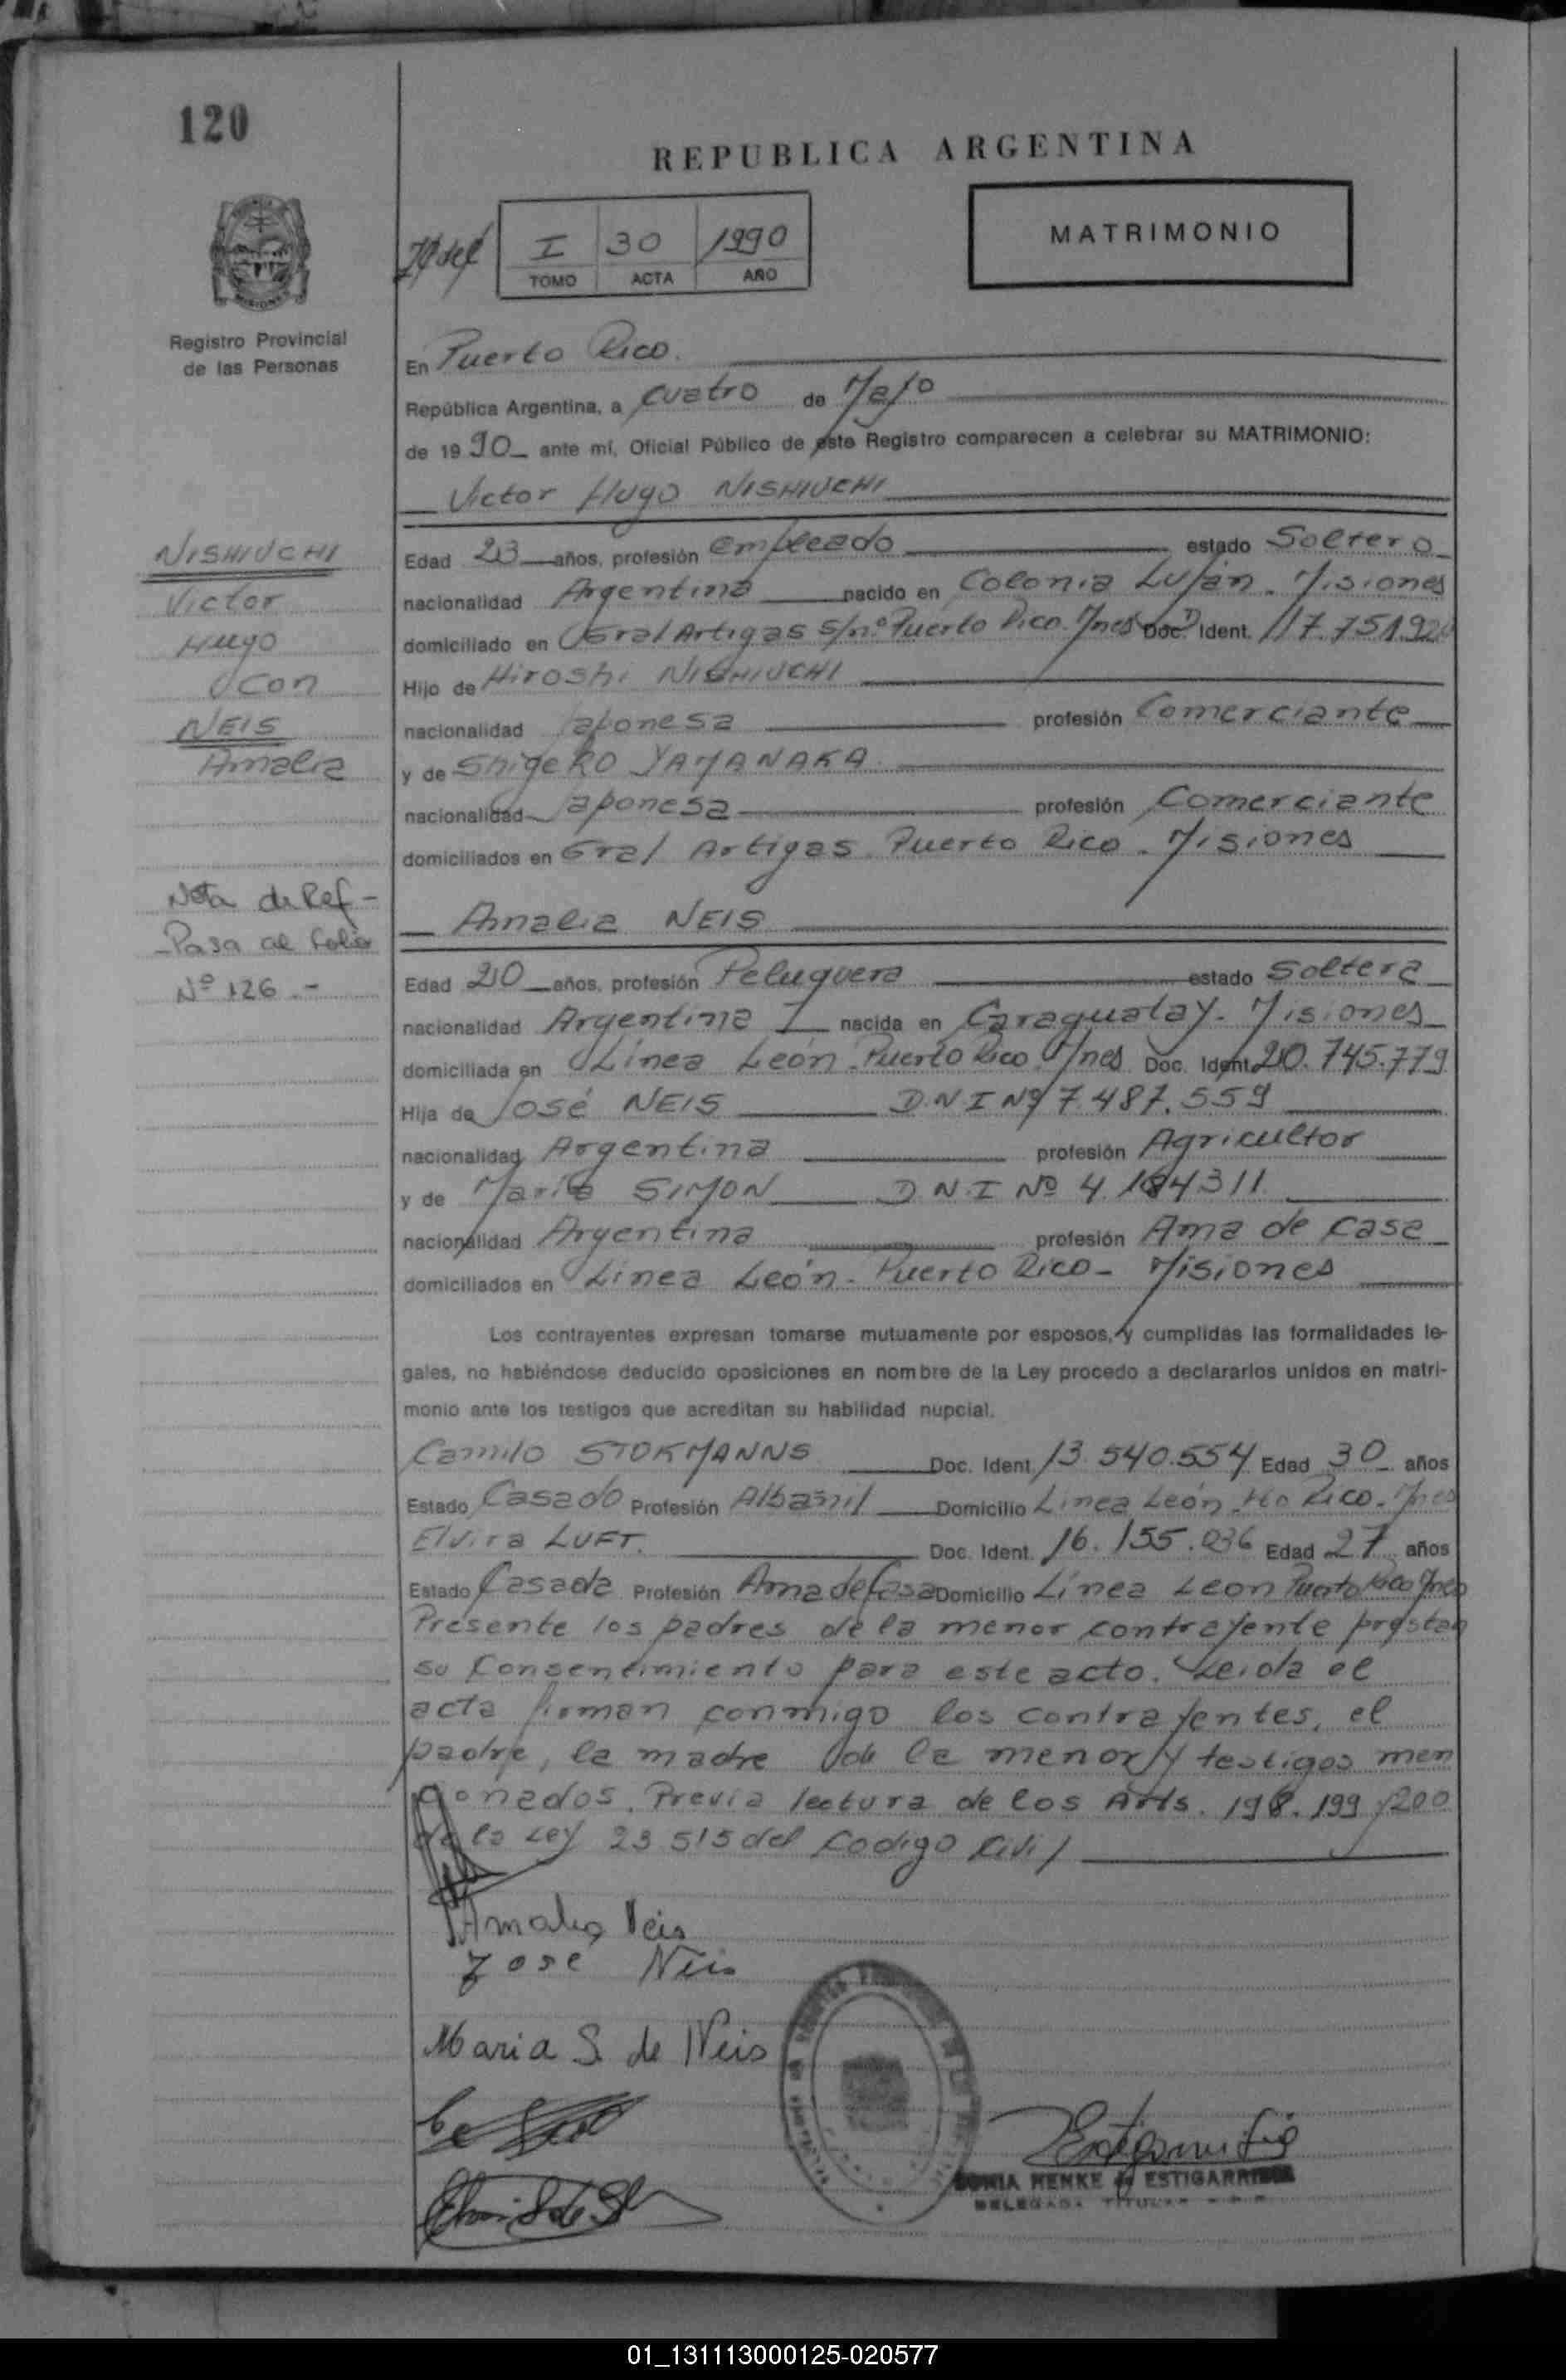 120
REPUBLICA ARGENTINA
I 30 1990
TOMO ACTA AÑO
MATRIMONIO
Registro Provincial
de las Personas
En Puerto Rico.
República Argentina, a cuatro de Mayo
de 1990 ante mí, Oficial Público de este Registro comparecen a celebrar su MATRIMONIO:
Victor Hugo NISHIUCHI
Edad 23 años, profesión empleado estado Soltero
nacionalidad Argentina nacido en Colonia Luján - Misiones
domiciliado en Gral Artigas s/nº Puerto Rico. Mnes Doc. Ident. 17.751.92
Hijo de Hiroshi NISHIUCHI
nacionalidad Japonesa profesión Comerciante
y de ShigeKo YAMANAKA
nacionalidad Japonesa profesión Comerciante
domiciliados en Gral Artigas Puerto Rico - Misiones
NISHIUCHI
Victor
Hugo
Con
NEIS
Amalia
Nota de Ref -
- Pasa al folio
Nº 126 . -
Amalia NEIS
Edad 20 años, profesión Peluquera estado Soltera
nacionalidad Argentina nacida en Caraguatay - Misiones
domiciliada en Línea León - Puerto Rico Mnes Doc. Ident. 20.745.779
Hija de José NEIS D.N.I Nº 7.487.559
nacionalidad Argentina profesión Agricultor
y de Maria SIMON D.N.I Nº 4.184311
nacionalidad Argentina profesión Ama de casa
domiciliados en Linea León - Puerto Rico - Misiones
Los contrayentes expresan tomarse mutuamente por esposos, y cumplidas las formalidades le-
gales, no habiéndose deducido oposiciones en nombre de la Ley procedo a declararlos unidos en matri-
monio ante los testigos que acreditan su habilidad nupcial.
Camilo STOKMANNS Doc. Ident. 13.540.554 Edad 30 años
Estado Casado Profesión Albañil Domicilio Linea León Pto Rico - Mnes
Elvira LUFT. Doc. Ident. 16.155.036 Edad 27 años
Estado Casada Profesión Ama de Casa Domicilio Línea Leon Puerto Rico Mnes
Presente los padres de la menor contrayente prestan
su Consentimiento para este acto. Leida el
acta firman conmigo los contrayentes, el
padre, la madre de la menor y testigos men
cionados. Previa lectura de los Arts. 198. 199 y 200
de la Ley 23 515 del Codigo Civil
Amalia Neis
Jose Neis
Maria S. de Neis
SONIA HENKE de ESTIGARRIBIA
DELEGADA TITULAR
01_131113000125-020577